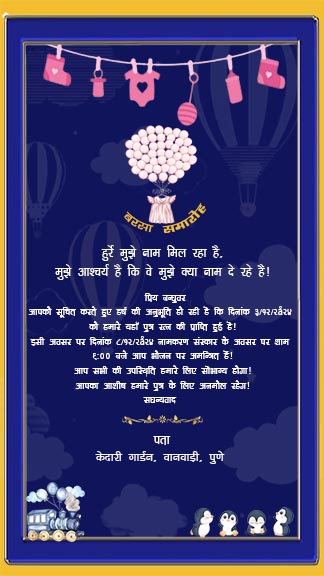 बरसा समारोह
हुर्रे मुझे नाम मिल रहा है,
मुझे आश्चर्य है कि वे मुझे क्या नाम दे रहे है!
प्रिय बन्धुवर
आपको सूचित करते हुए हर्ष की अनुभूति हो रही है कि दिनांक ३/१२/२०२४
को हमारे यहाँ पुत्र रत्न की प्राप्ति हुई है!
इसी अवसर पर दिनांक ८/१२/२०२४ नामकरण संस्कार के अवसर पर शाम
६:०० बजे आप भोजन पर अमन्त्रित हैं!
आप सभी की उपस्थिति हमारे लिए सौभाग्य होगा!
आपका आशीष हमारे पुत्र के लिए अनमोल रहेगा!
सधन्यवाद
पता
केदारी गार्डन, वानवाड़ी, पुणे